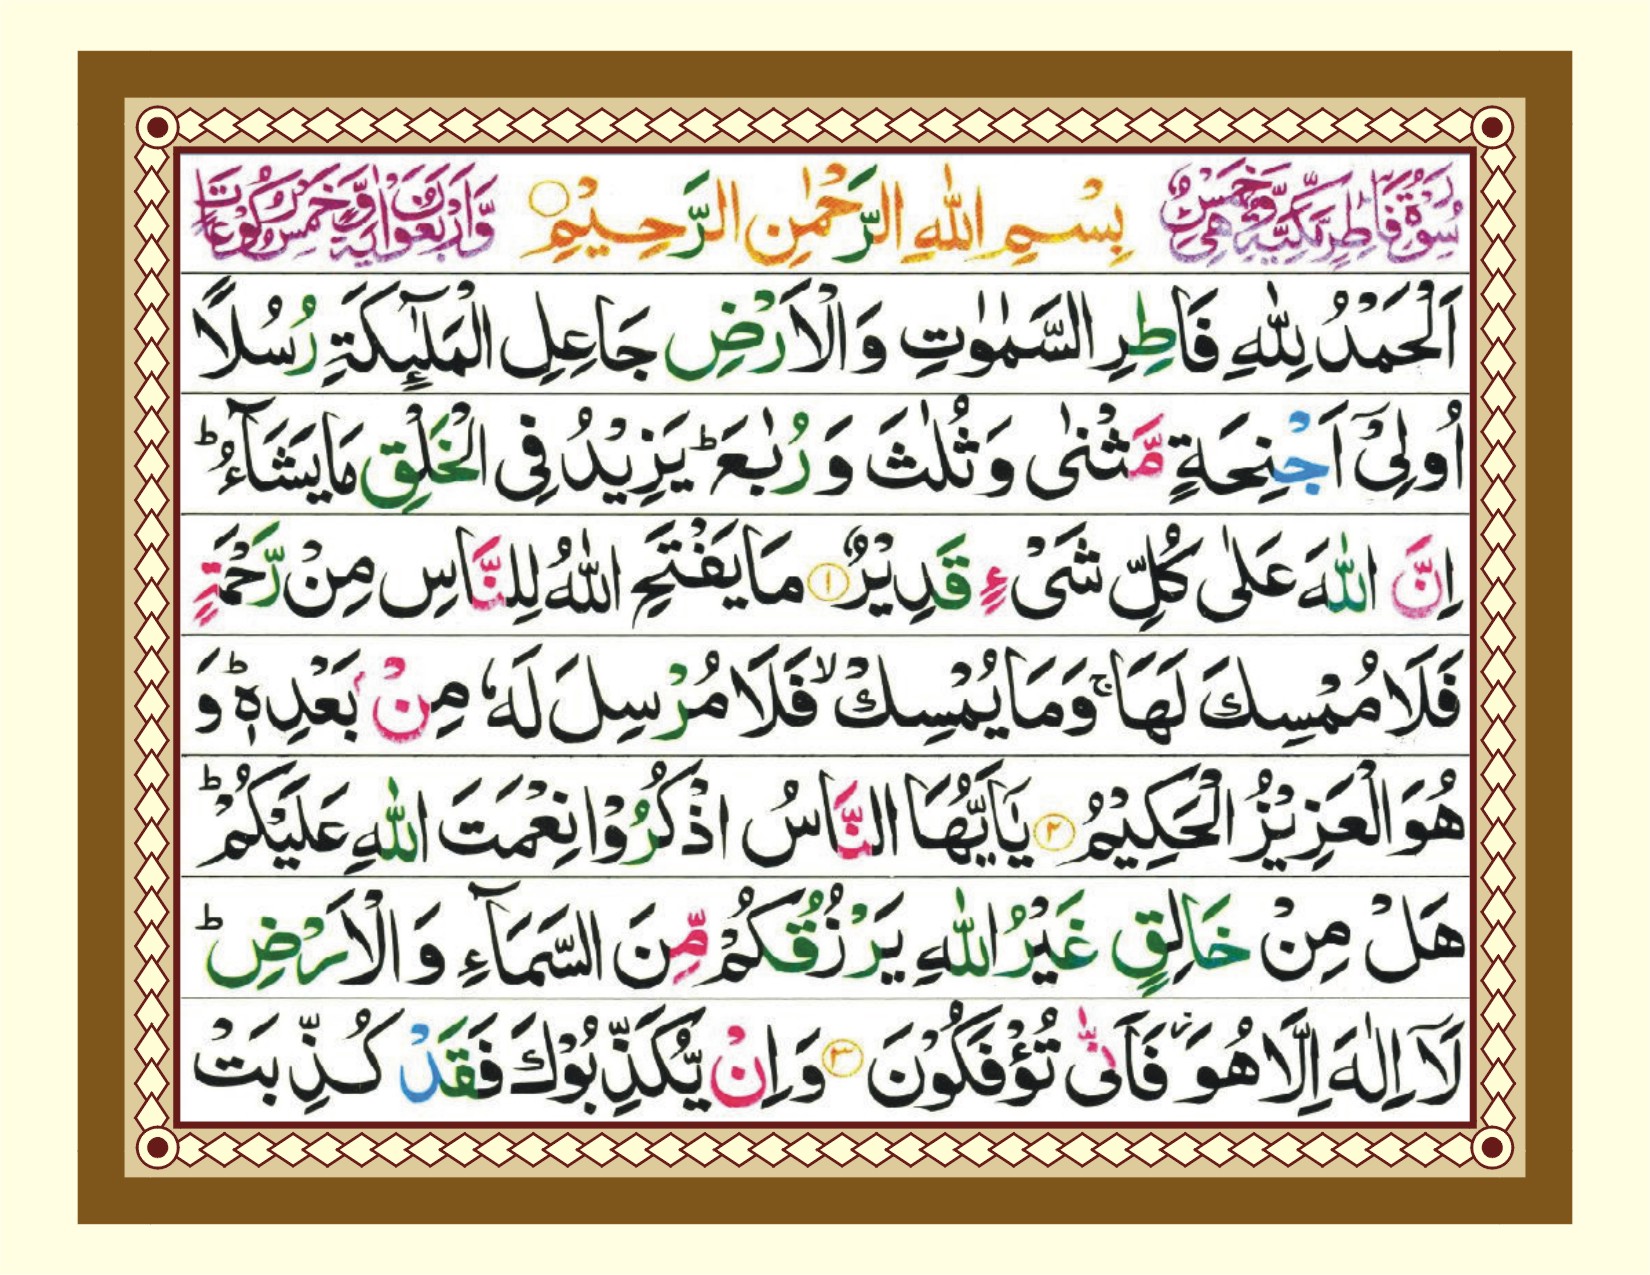 سُوْرَةُ فَاطِرٍ مَّكِّيَّةٌ وَّهِيَ خَمْسٌ بِسْمِ اللّٰهِ الرَّحْمٰنِ الرَّحِيْمِ ○ وَّاَرْبَعُوْنَ اٰيَةً وَّخَمْسُ رُكُوْعَاتٍ
اَلْحَمْدُ لِلّٰهِ فَاطِرِ السَّمٰوٰتِ وَ الْاَرْضِ جَاعِلِ الْمَلٰٓئِكَةِ رُسُلًا
اُولِیْۤ اَجْنِحَةٍ مَّثْنٰى وَ ثُلٰثَ وَ رُبٰعَؕ يَزِيْدُ فِی الْخَلْقِ مَا يَشَآءُؕ
اِنَّ اللّٰهَ عَلٰى كُلِّ شَیْءٍ قَدِيْرٌ ۝۱ مَا يَفْتَحِ اللّٰهُ لِلنَّاسِ مِنْ رَّحْمَةٍ
فَلَا مُمْسِكَ لَهَاۚ وَمَا يُمْسِكْۙ فَلَا مُرْسِلَ لَهٗ مِنْۢ بَعْدِهٖؕ وَ
هُوَ الْعَزِيْزُ الْحَكِيْمُ ۝۲ يٰۤاَيُّهَا النَّاسُ اذْكُرُوْا نِعْمَتَ اللّٰهِ عَلَيْكُمْؕ
هَلْ مِنْ خَالِقٍ غَيْرُ اللّٰهِ يَرْزُقُكُمْ مِّنَ السَّمَآءِ وَ الْاَرْضِؕ
لَاۤ اِلٰهَ اِلَّا هُوَ ؗ فَاَنّٰى تُؤْفَكُوْنَ ۝۳ وَ اِنْ يُّكَذِّبُوْكَ فَقَدْ كُذِّبَتْ